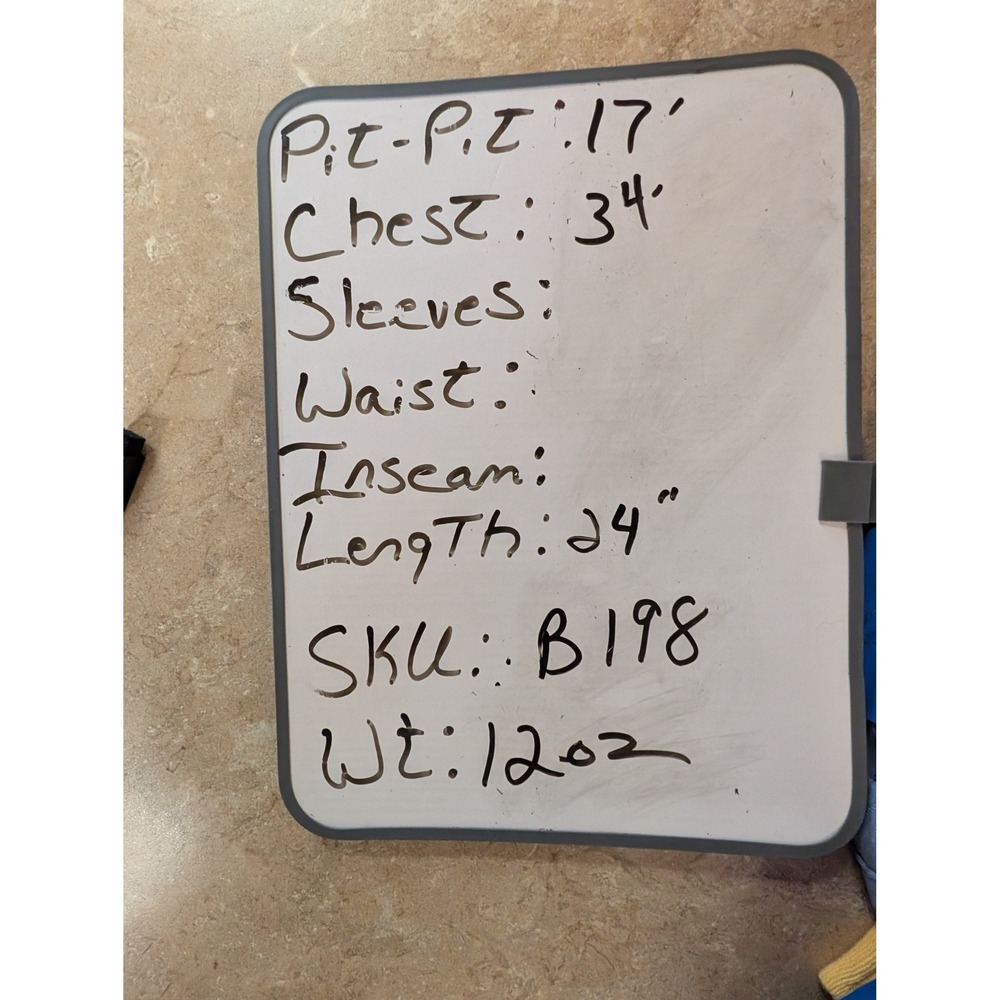 Pit-Pit: 17'
Chest: 34'
Sleeves:
Waist:
Inseam:
Length: 24"
SKU: B198
Wt: 12oz